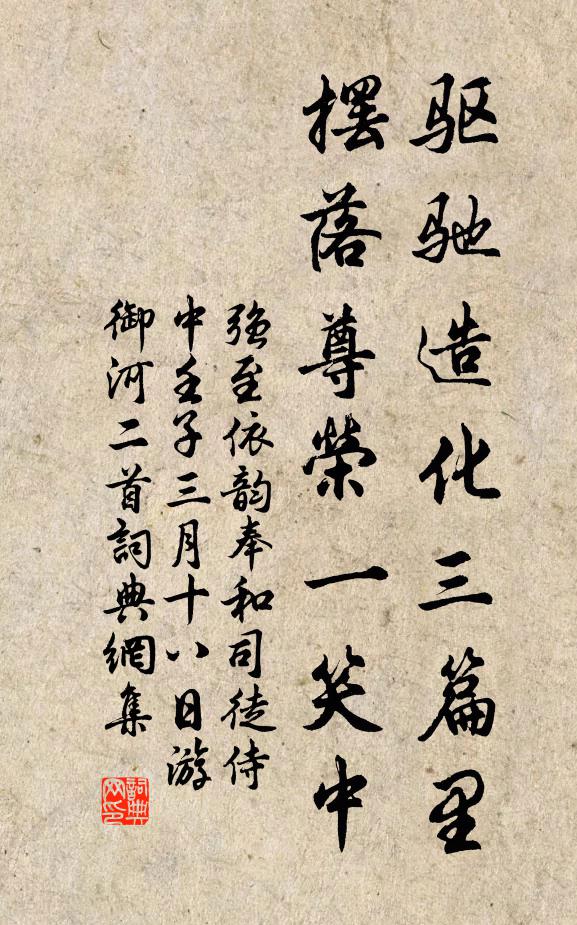 驱驰造化三篇里
摆落尊榮一笑中
强至依韵奉和司徒侍
中壬子三月十八日游
御河二首詞典網集
詞典
网印